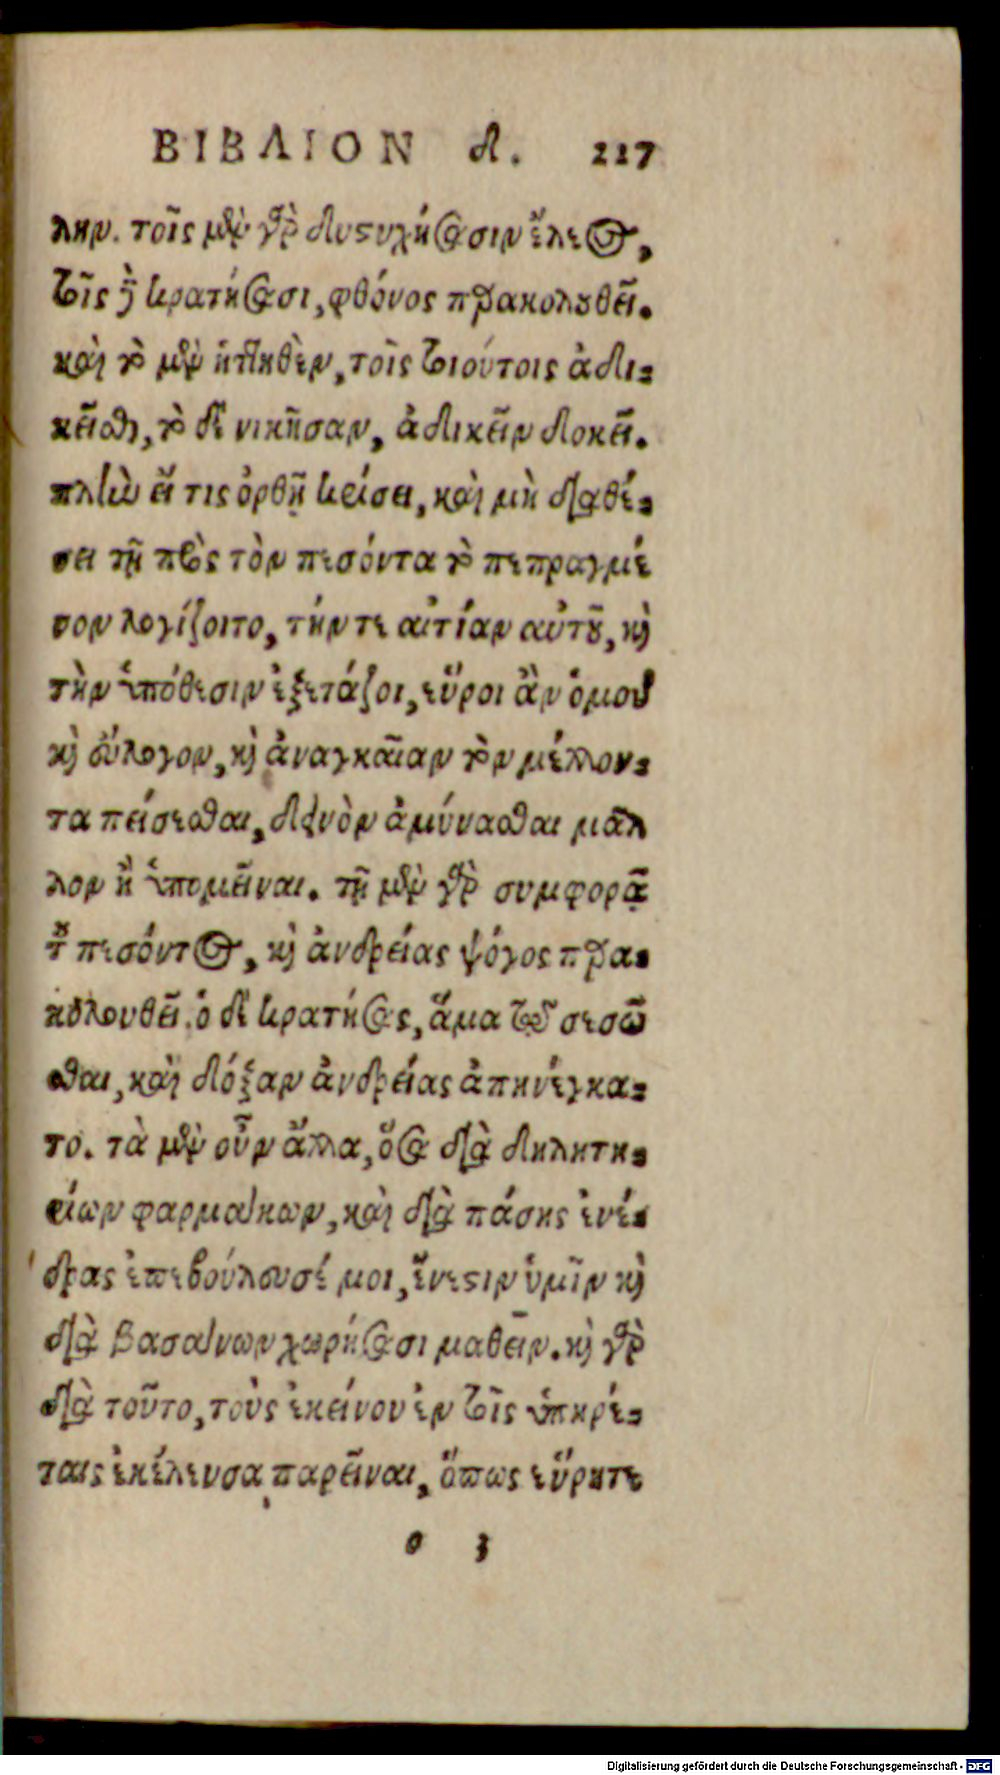 ΒΙΒΛΙΟΝ δ. 227
λην. τοῖς μὲν γὰρ δυστυχήσασιν ἔλεος,
τοῖς δὲ κρατήσασι, φθόνος παρακολουθεῖ.
καὶ τὸ μὲν ἡττηθὲν, τοῖς τοιούτοις ἀδι-
κεῖσθαι, τὸ δὲ νικῆσαν, ἀδικεῖν δοκεῖ.
πλὴν εἴ τις ὀρθῇ κρίσει, καὶ μὴ διαθέ-
σει τῇ πρὸς τὸν πεσόντα τὸ πεπραγμέ
νον λογίζοιτο, τήν τε αἰτίαν αὐτοῦ, καὶ
τὴν ὑπόθεσιν ἐξετάζοι, εὕροι ἂν ὁμοῦ
καὶ εὔλογον, καὶ ἀναγκαῖαν τὸν μέλλον-
τα πείσεσθαι, δεινὸν ἀμύνασθαι μᾶλ
λον ἢ ὑπομεῖναι. τῇ μὲν γὰρ συμφορᾷ
τοῦ πεσόντος, καὶ ἀνδρείας ψόγος παρα-
κολουθεῖ. ὁ δὲ κρατήσας, ἅμα τῷ σεσῶ
σθαι, καὶ δόξαν ἀνδρείας ἀπηνέγκα-
το. τὰ μὲν οὖν ἄλλα, ὅσα διὰ δηλητη-
ρίων φαρμάκων, καὶ διὰ πάσης ἐνέ-
δρας ἐπεβούλευσέ μοι, ἔνεστιν ὑμῖν καὶ
διὰ βασάνων χωρήσασι μαθεῖν. καὶ γὰρ
διὰ τοῦτο, τοὺς ἐκείνου ἐν τοῖς ὑπηρέ-
ταις ἐκέλευσα παρεῖναι, ὅπως εὕρητε
o 3
Digitalisierung gefördert durch die Deutsche Forschungsgemeinschaft - DFG